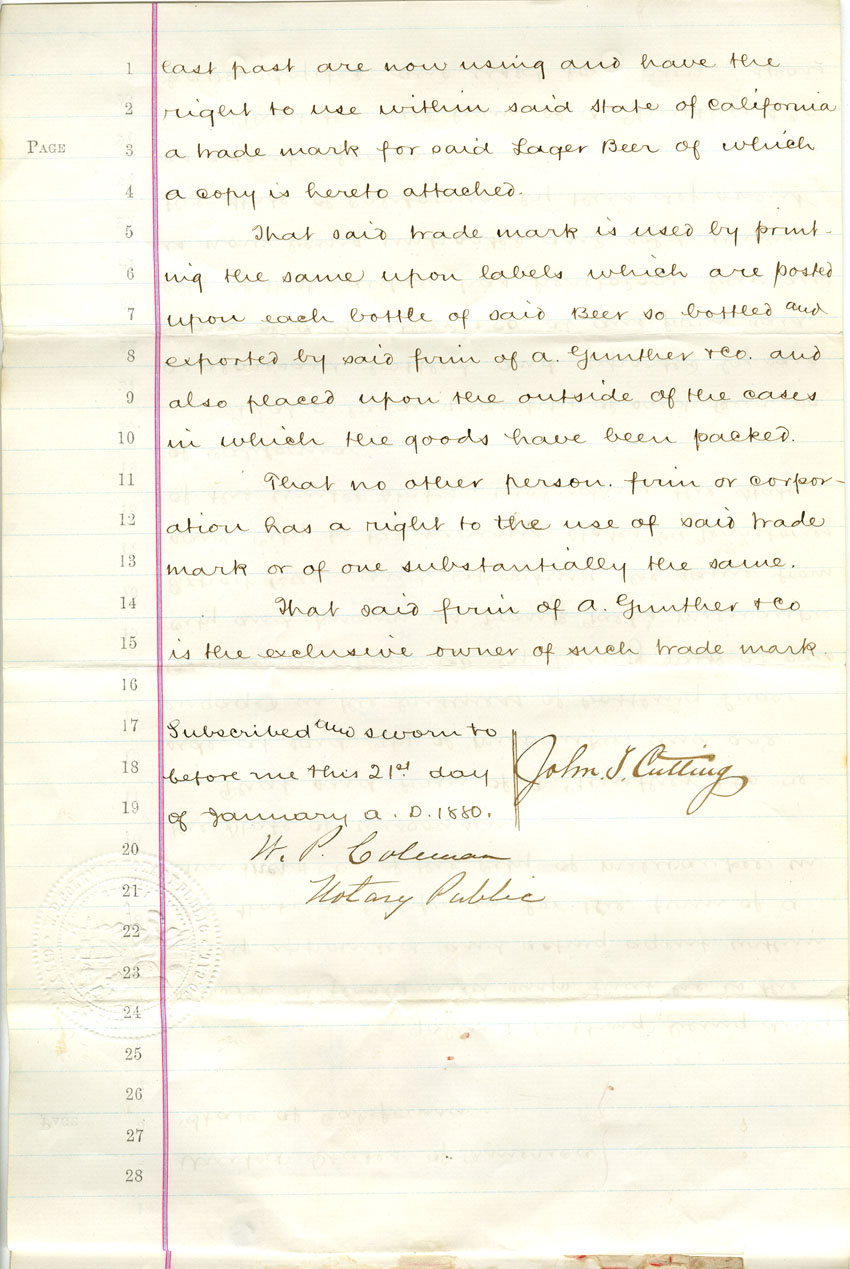 1 last past are now using and have the
2 right to use within said state of California
PAGE 3 a trade mark for said Lager Beer of which
4 a copy is hereto attached.
5 That said trade mark is used by print-
6 ing the same upon labels which are posted
7 upon each bottle of said Beer so bottled and
8 exported by said firm of A. Gunther & Co. and
9 also placed upon the outside of the cases
10 in which the goods have been packed.
11 That no other person. firm or corpor-
12 ation has a right to the use of said trade
13 mark or of one substantially the same.
14 That said firm of A. Gunther & Co
15 is the exclusive owner of such trade mark.
16
17 Subscribed and sworn to
18 before me this 21st day John. T. Cutting
19 of January A. D. 1880.
20 W. P. Coleman
21 Notary Public
22
23
24
25
26
27
28